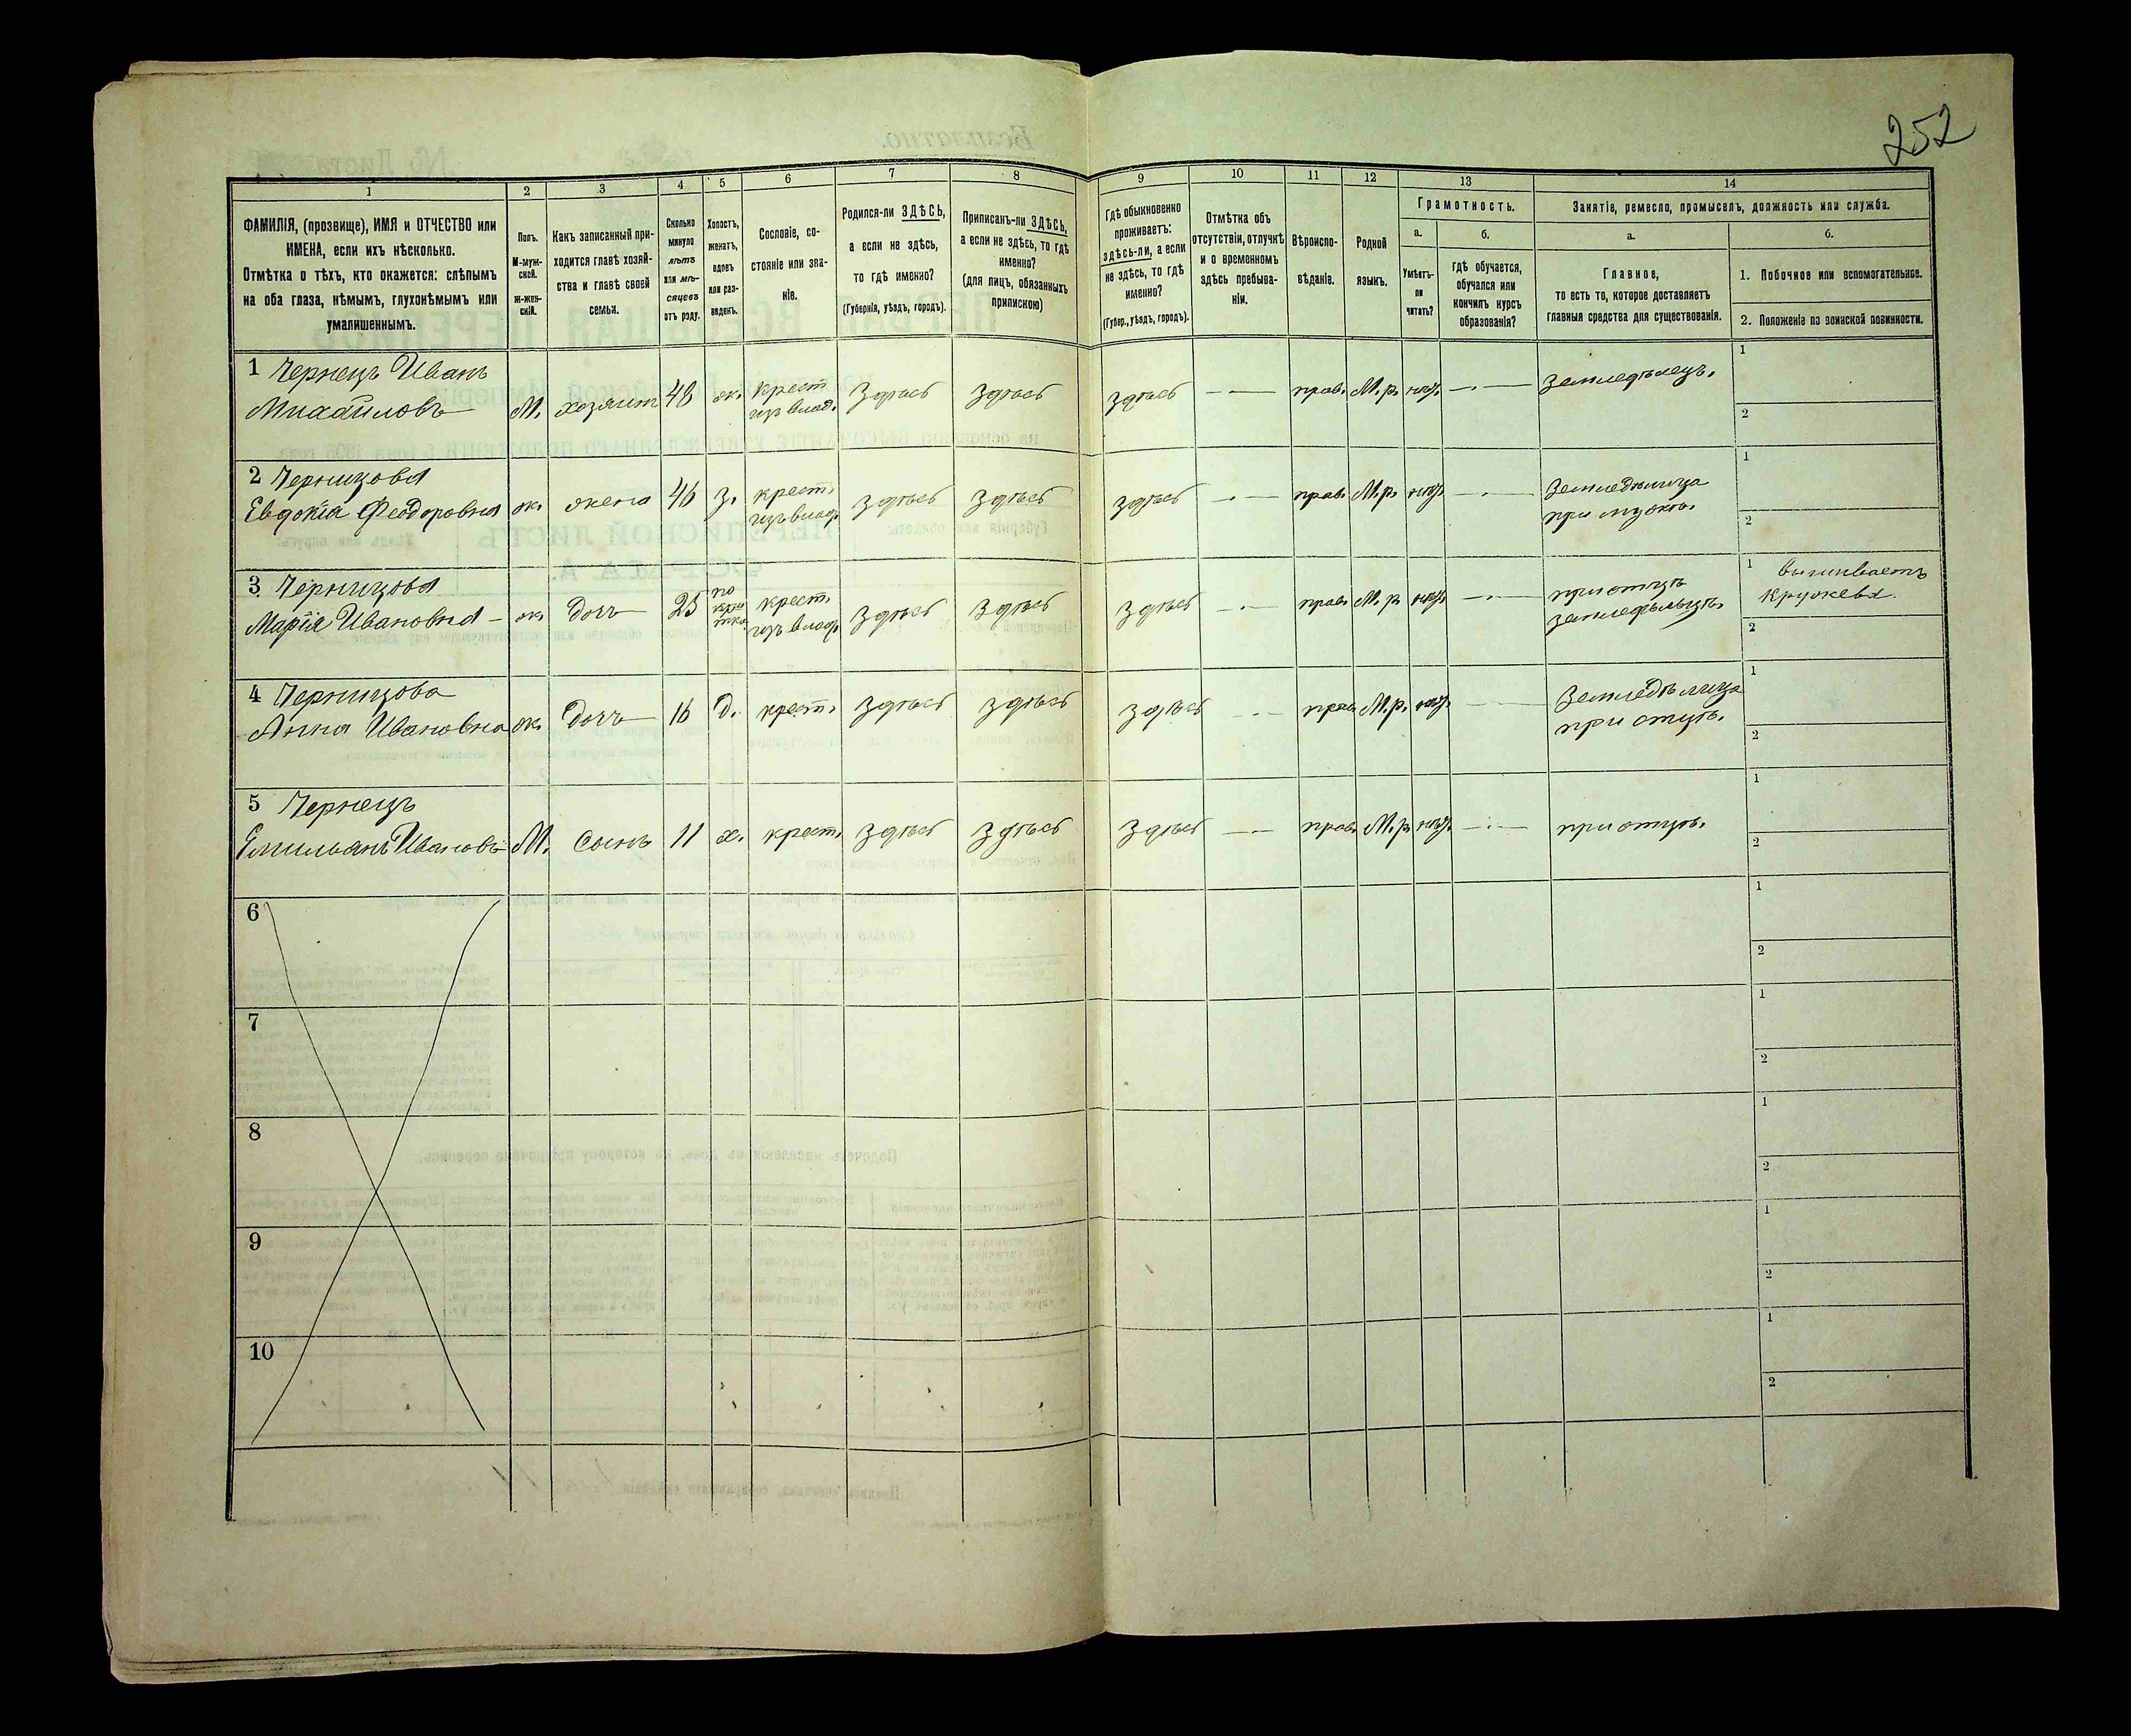 252
1 2 3 4 5 6 7 8 9 10 11 12 13 14
ФАМИЛІЯ, (прозвище), ИМЯ и ОТЧЕСТВО или
ИМЕНА, если ихъ нѣсколько.
Отмѣтка о тѣхъ, кто окажется: слѣпымъ
на оба глаза, нѣмымъ, глухонѣмымъ или
умалишеннымъ.
Полъ.
М-муж-
ской.
Ж-жен-
скій.
Какъ записанный при-
ходится главѣ хозяй-
ства и главѣ своей
семьи.
Сколько
минуло
лѣтъ
или мѣ-
сяцевъ
отъ роду.
Холостъ,
женатъ,
вдовъ
или раз-
веденъ.
Сословіе, со-
стояніе или зва-
ніе.
Родился-ли ЗДѢСЬ,
а если не здѣсь,
то гдѣ именно?
(Губернія, уѣздъ, городъ).
Приписанъ-ли ЗДѢСЬ,
а если не здѣсь, то гдѣ
именно?
(для лицъ, обязанныхъ
припискою)
Гдѣ обыкновенно
проживаетъ:
здѣсь-ли, а если
не здѣсь, то гдѣ
именно?
(Губер., уѣздъ, городъ).
Отмѣтка объ
отсутствіи, отлучкѣ
и о временномъ
здѣсь пребыва-
ніи.
Вѣроиспо-
вѣданіе.
Родной
языкъ.
Грамотность.
а.
Умѣетъ-
ли
читать?
б.
Гдѣ обучается,
обучался или
кончилъ курсъ
образованія?
Занятіе, ремесло, промыселъ, должность или служба.
а.
Главное,
то есть то, которое доставляетъ
главныя средства для существованія.
б.
1. Побочное или вспомогательное.
2. Положеніе по воинской повинности.
1 Чернецъ Иванъ
Михайловъ М. хозяинъ 48 ж. крест. изъ влад. Здѣсь Здѣсь Здѣсь — прав. М.р. нѣт. — Земледѣлецъ. 1 2
2 Чернцова
Евдокія Феодоровна ж. жена 46 з. крест. изъ влад. Здѣсь Здѣсь Здѣсь — прав. М.р. нѣт. — Земледѣлица при мужѣ. 1 2
3 Чернцова
Марія Ивановна ж. дочь 25 крест. изъ влад. Здѣсь Здѣсь Здѣсь — прав. М.р. нѣт. — при отцѣ земледѣльцѣ. 1 вышиваетъ кружева. 2
4 Чернцова
Анна Ивановна ж. дочь 16 д. крест. Здѣсь Здѣсь Здѣсь — прав. М.р. нѣт. — Земледѣлица при отцѣ. 1 2
5 Чернецъ
Емильянъ Ивановъ М. сынъ 11 х. крест. Здѣсь Здѣсь Здѣсь — прав. М.р. нѣт. — при отцѣ. 1 2
6 1 2
7 1 2
8 1 2
9 1 2
10 1 2